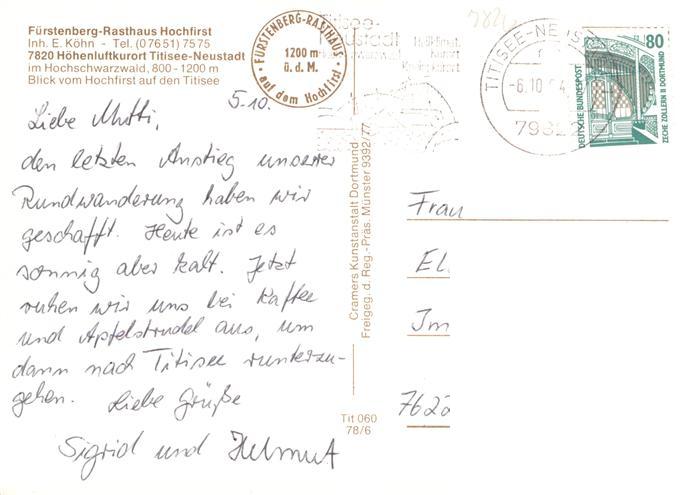 Fürstenberg-Rasthaus Hochfirst
Inh. E. Köhn - Tel. (07651) 7575
7820 Höhenluftkurort Titisee-Neustadt
im Hochschwarzwald, 800 - 1200 m
Blick vom Hochfirst auf den Titisee
FÜRSTENBERG-RASTHAUS
1200 m
ü. d. M.
auf dem Hochfirst
Titisee-
Neustadt
Heilklimat.
Kurort
Kneippkurort
TITISEE-NEUS
-6.10
79822
80
DEUTSCHE BUNDESPOST
ZECHE ZOLLERN II DORTMUND
5.10.
Liebe Mutti,
den letzten Anstieg unserer
Rundwanderung haben wir
geschafft. Heute ist es
sonnig aber kalt. Jetzt
ruhen wir uns bei Kaffee
und Apfelstrudel aus, um
dann nach Titisee runterzu-
gehen. Liebe Grüße
Sigrid und Helmut
Cramers Kunstanstalt Dortmund
Freigeg. d. Reg.-Präs. Münster 9392/77
Tit 060
78/6
Frau
El.
Im
7622